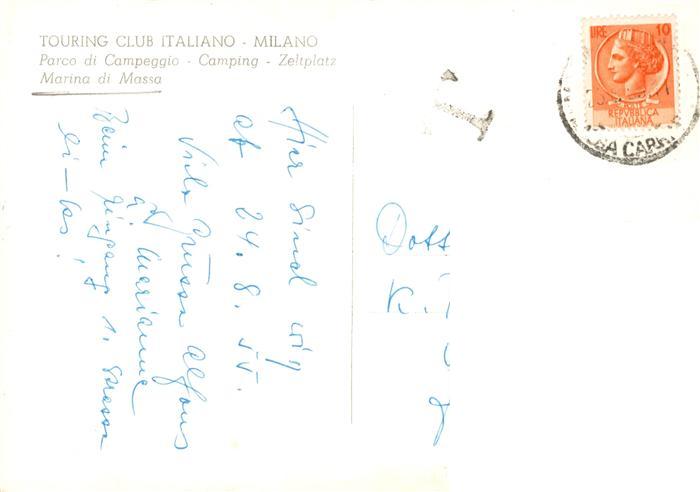 TOURING CLUB ITALIANO - MILANO
Parco di Campeggio - Camping - Zeltplatz
Marina di Massa
Hier sind wir
at 24. 8. 55.
Viele Grüsse Alfons
Marianne
Beim 1. Strasse
li-
LIRE 10
REPVBBLICA
ITALIANA
T
Dott